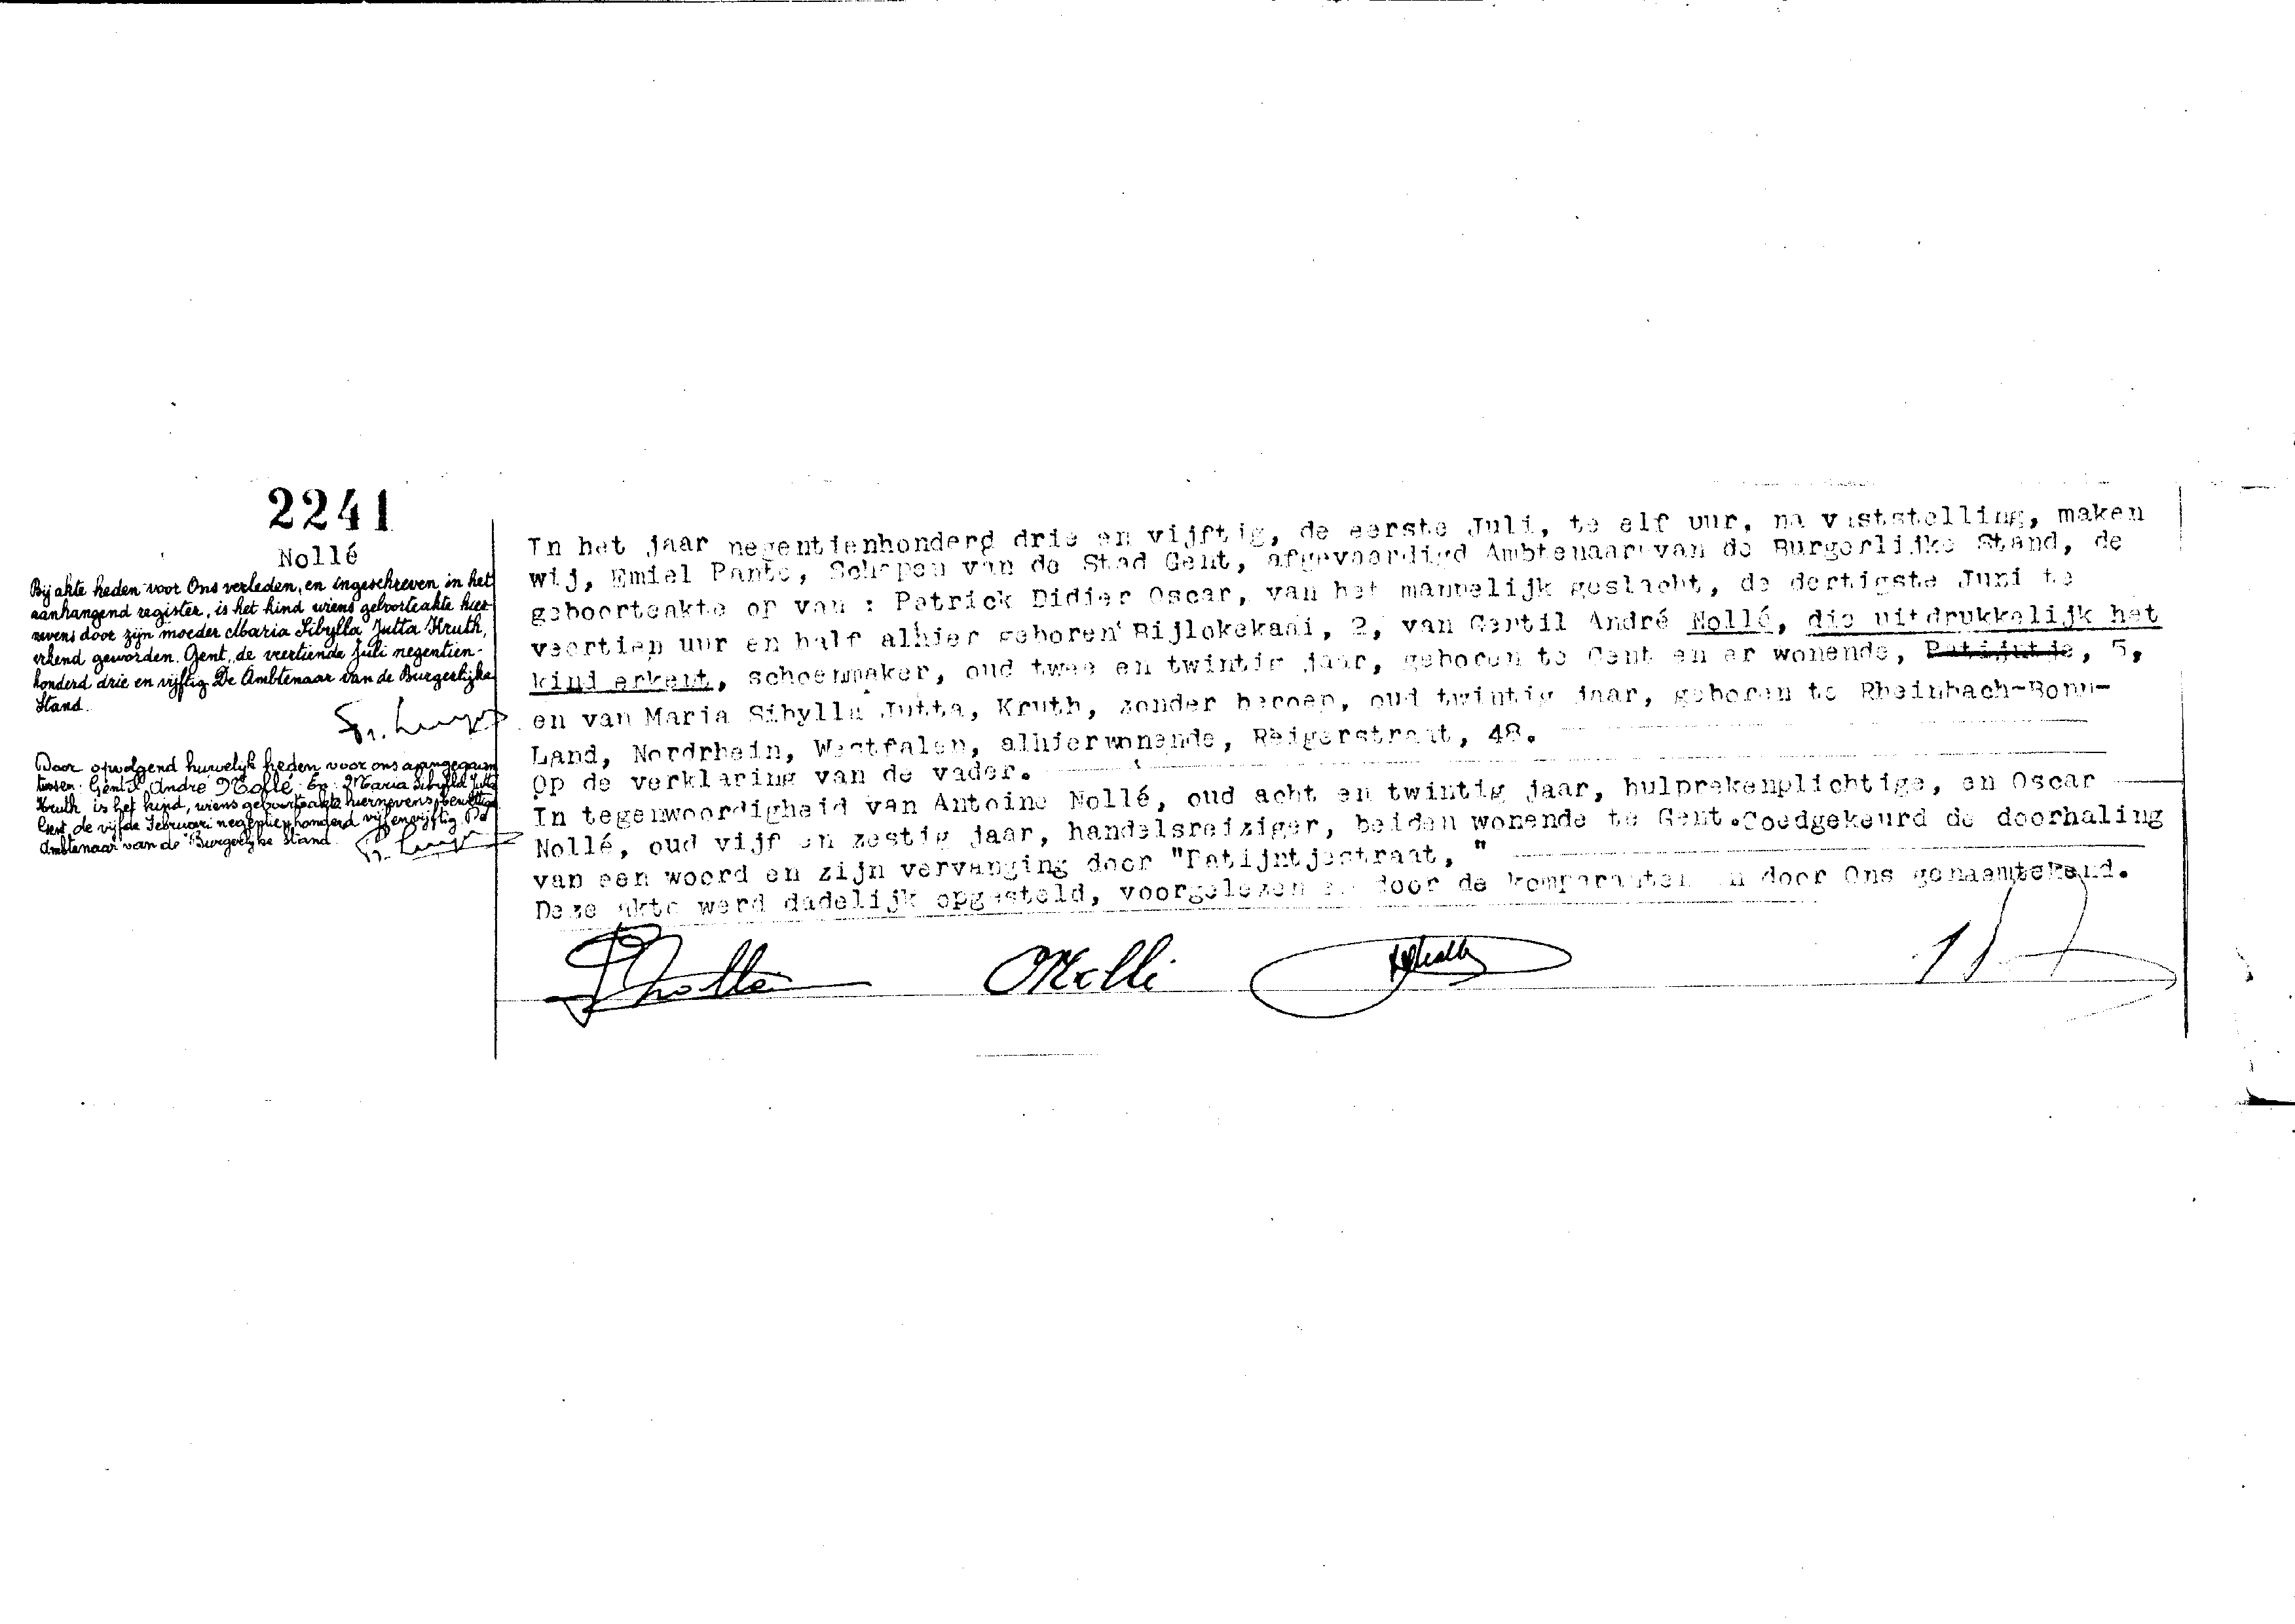 2241
Nollé
Bij akte heden voor Ons verleden, en ingeschreven in het
aanhangend register, is het kind wiens geboorteakte hier-
nevens door zijn moeder Maria Sibylla Jutta Kruth,
erkend geworden. Gent, de veertiende Juli negentien-
honderd drie en vijftig De Ambtenaar van de Burgerlijke
Stand.
Door opvolgend huwelijk heden voor ons aangegaan
tussen: Gentil André Nollé En: Maria Sibylla Jutta
Kruth is het kind, wiens geboorteakte hiernevens, gewettigd
Gent, de vijfde Februari negentienhonderd vijfenvijftig De
Ambtenaar van de Burgerlijke Stand.
In het jaar negentienhonderd drie en vijftig, de eerste Juli, te elf uur, na vaststelling, maken
wij, Emiel Pante, Schepen van de Stad Gent, afgevaardigd Ambtenaar van de Burgerlijke Stand, de
geboorteakte op van : Patrick Didier Oscar, van het mannelijk geslacht, de dertigste Juni te
veertien uur en half alhier geboren Bijlokekaai, 2, van Gentil André Nollé, die uitdrukkelijk het
kind erkent, schoenmaker, oud twee en twintig jaar, geboren te Gent en er wonende, Patijntje, 5,
en van Maria Sibylla Jutta, Kruth, zonder beroep, oud twintig jaar, geboren te Rheinbach-Bonn-
Land, Nordrhein, Westfalen, alhier wonende, Reigerstraat, 48.
Op de verklaring van de vader.
In tegenwoordigheid van Antoine Nollé, oud acht en twintig jaar, hulprekenplichtige, en Oscar
Nollé, oud vijf en zestig jaar, handelsreiziger, beiden wonende te Gent.Goedgekeurd de doorhaling
van een woord en zijn vervanging door "Patijntjestraat, "
Deze akte werd dadelijk opgesteld, voorgelezen en door de komparanten en door Ons genaamtekend.